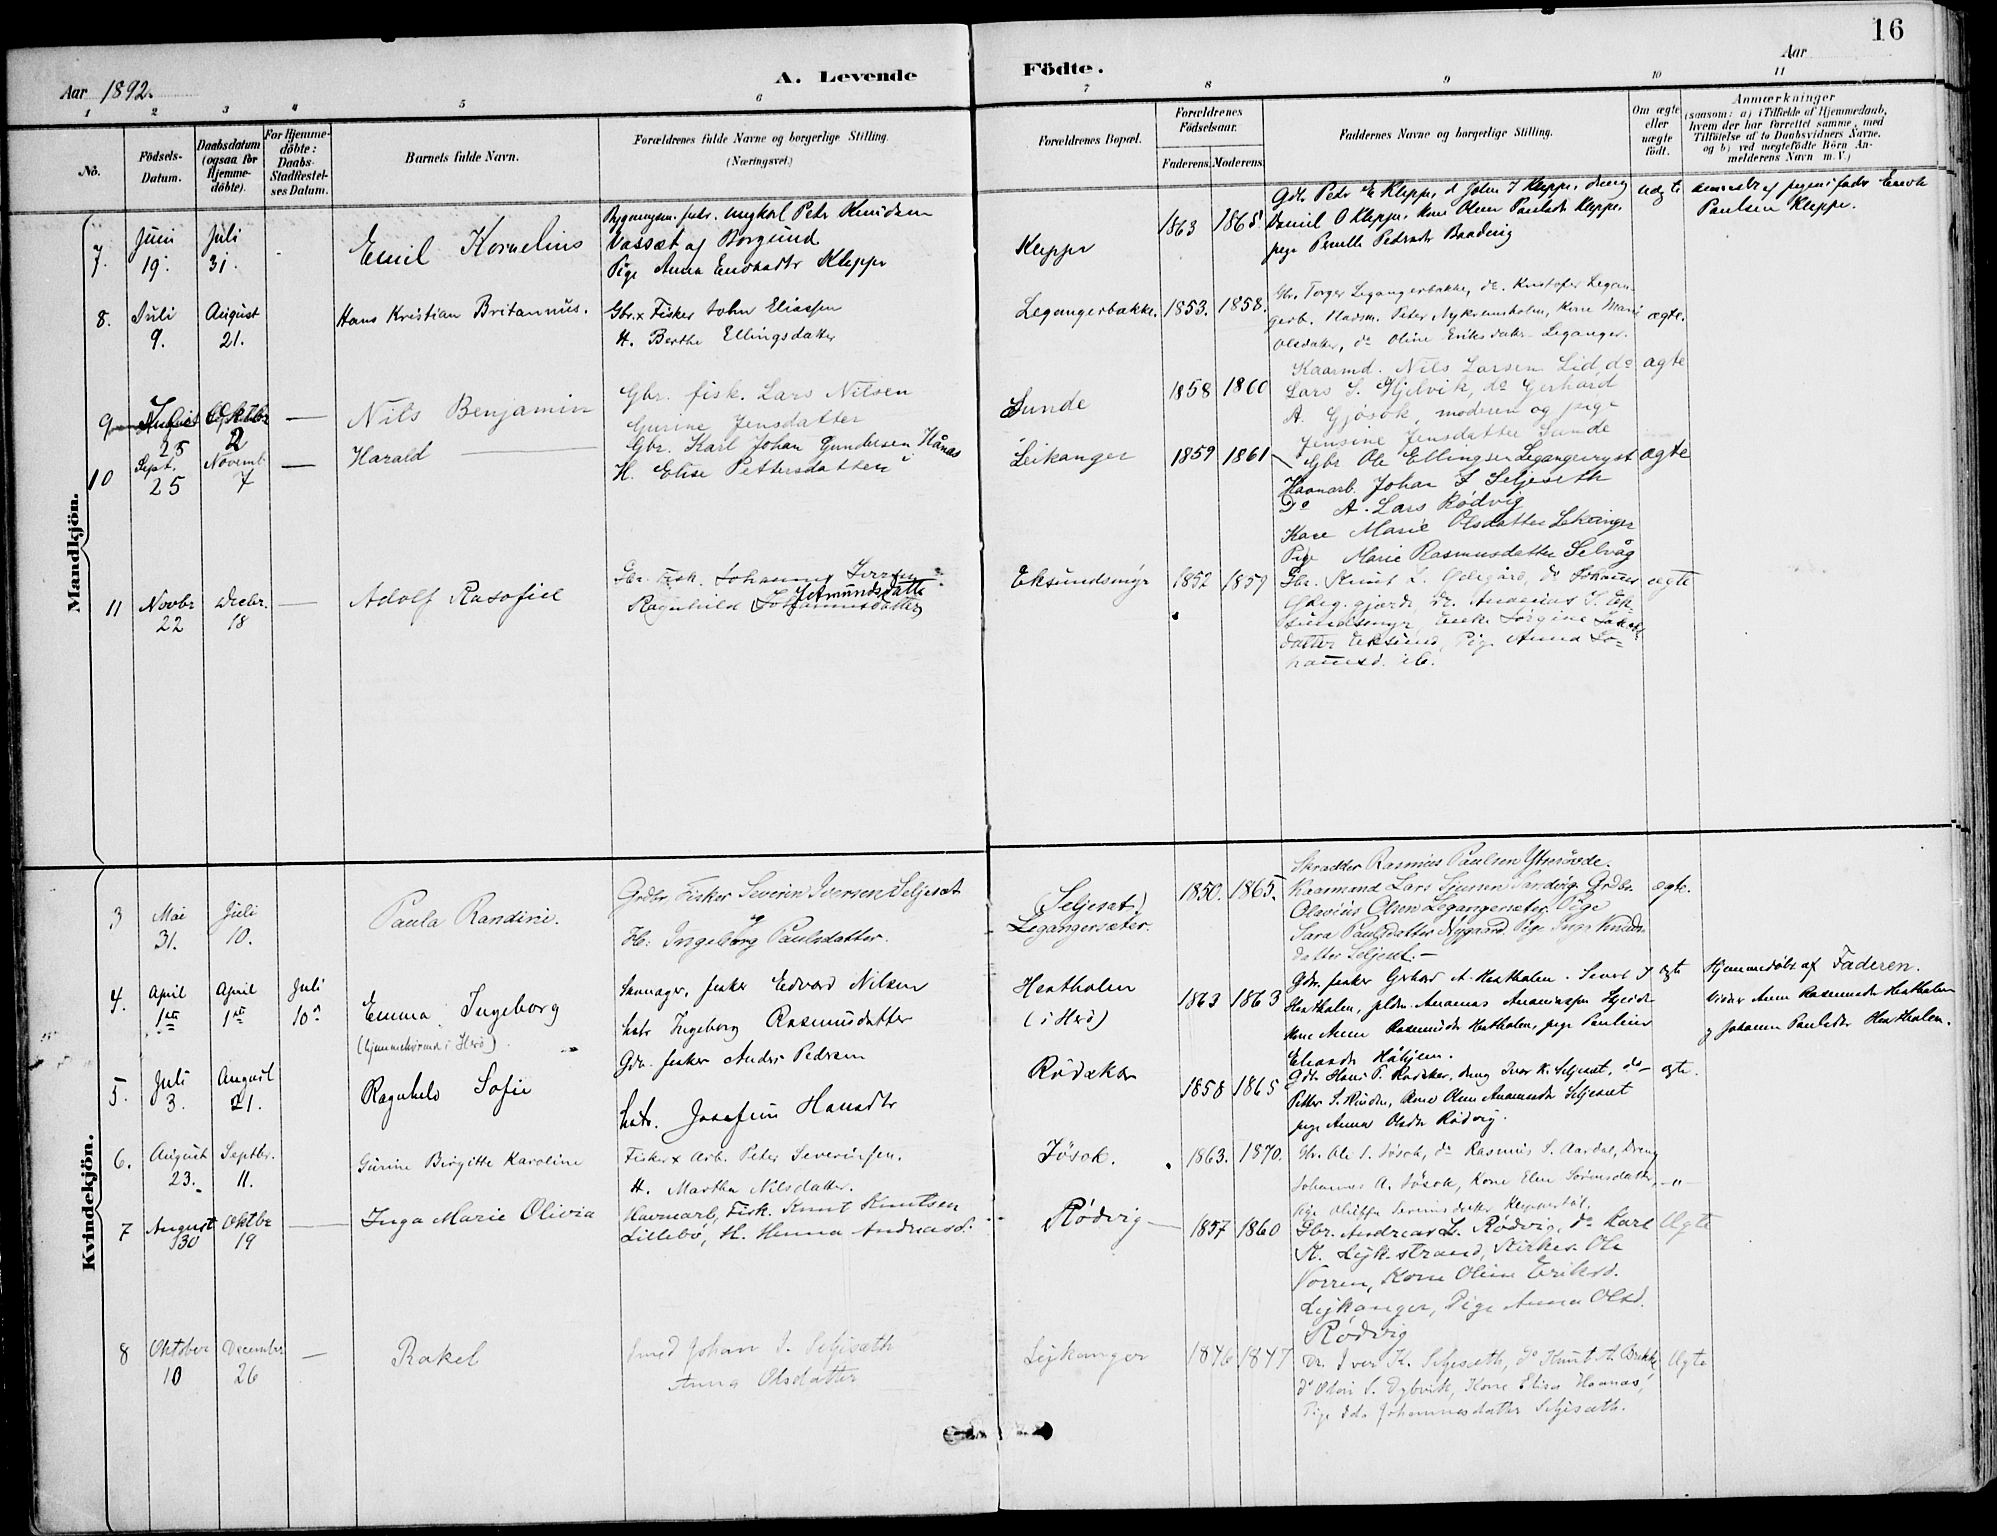 16
Aar 1892.
A. Levende
Födte.
Aar
1 2 3 4 5 6 7 8 9 10 11
No.
Födsels-Datum.
Daabsdatum (ogsaa for Hjemme-döbte).
For Hjemme-döbte: Daabs-Stadfæstel-ses Datum.
Barnets fulde Navn.
Forældrenes fulde Navne og borgerlige Stilling. (Næringsvei.)
Forældrenes Bopæl.
Forældrenes Födselsaar.
Faderens. Moderens.
Faddernes Navne og borgerlige Stilling.
Om ægte eller uægte födt.
Anmærkninger
(saasom: a) i Tilfælde af Hjemmedaab,
hvem der har forrettet samme, med
Tilföielse af to Daabsvidners Navne.
og b) ved uægtefödte Börn An-
melderens Navn m. V.)
Mandkjön.
7. Juni 19. Juli 31. - Emil Kornelius
ungkarl Peter Knudsen
Vassæt af Borgund
Pige Anna Enoksdtr Kleppe
Kleppe 1863 1865.
Gdr. Petr E Kleppe, d John J Kleppe, dreng
Daniel O Kleppe, kone Oline Paulsdtr Kleppe,
pige Pernille Pedersdtr
uægte
anmeldt af pigens fader Enok
Paulsen Kleppe.
8. Juli 9. August 21. Hans Kristian Britannus.
Gbr. x Fisker John Eliassen
H. Berthe Ellingsdatter
Legangerbakke. 1853. 1858.
Gbr. Torger Legangerbakke, do. Kristofer Legan-
gerb. Peter Kone Mari
Olsdatter, do Oline Eriksdatter Leganger.
ægte.
9 August 25 Oktbr 2 — Nils Benjamin
Gbr. fisk. Lars Nilsen
Gurine Jensdatter
Sunde 1858 1860
Kaarmd. Nils Larsen Lid, do
Lars S. Hjelvik, do Gerhard
A. Gjøsøk, moderen og pige
Jensine Jensdatter Sunde
ægte
10 Sept. 25 Novemb. 7 — Harald
Gbr. Karl Johan Gundersen Hånæs
H. Elise Pettersdatter
Leikanger 1859 1861
Gbr Ole Ellingsen
Havnarb. Johan I Seljeseth
Do A. Lars Rödvig
Kone Marie Olsdatter Lekanger
Pige Marie Rasmusdatter Selvåg
ægte
11 Novbr 22 Decbr. 18 — Adolf Rasofiel
Gbr. Fisk. Johannes Iversen
Ragnhild Johannesdatter Jetmundsdatter
Eksundsmyr 1852 1857
Gbr. Knut L. Ødegård, do Johannes
Ødeg.gjerde, Dr. Ananias J. Ek-
sundsmyr, Enke Jørgine Jakobs
datter Eksund, Pige Anna Jo-
hannesd. ib.
ægte
Kvindekjön.
3 Mai 31. Juli 10. Paula Randine.
Grdbr. Fisker Severin Iversen Seljesæt
og
H: Ingeborg Paulsdatter.
(Seljesæt) Legangersæter. 1850. 1865.
Skrædder Rasmus Paulsen Ytrehovde.
Kaarmand Lars Sjursen Sandvig. Grdbr.
Olavius Olsen Legangersæter. Pige
Sara Paulsdatter Nygaard. Pige Inga Knuds-
datter Seljeset. —
ægte.
4. April 1ste April 1ste Juli 10de Emma Ingeborg
(hjemmehørende i Herø)
fisker Edvard Nilsen
hstr Ingeborg Rasmusdatter
Hestholen (i Herö) 1863 1863
Gdr. fisker Gerhard A. Hestholen.
Hestholen, Ananias Ananiassen
kone Anne Rasmusdtr Hestholen, pige Pauline
ægte
Hjemmedøbt af Faderen.
Vidner Anne Rasmusdtr Hestholen
og Johanne Paulsdtr Hestholen.
5. Juli 3. August 21. Ragnhild Sofie
Gdr. fisker Anders Pedersen
hstr. Josefine Hansdtr
Rödseter 1858 1865
Gdr Hans P. Rödseter, dreng Iver K. Seljesæt, do
Petter S. kone Oline Ananiasdtr Seljesæt
pige Anna Olsdtr Rödvig.
ægte.
6. August 23. Septbr. 11. Gurine Birgitte Karoline
Fisker x Arb. Peter Severinsen.
H. Martha Nilsdatter.
Jøsok. 1863. 1870.
Gbr. Ole S. Jøsok, do Rasmus S. Aardal, Dreng
Johannes A. Jøsok, Kone Elen Sørensdatter,
-"-
7 August 30 Oktbr 19 — Inga Marie Olivia
Havnearb, Fisk. Knut Knutsen
Lillebø, H. Hanna Andreasd.
Rødvig 1857 1860
Gbr. Andreas L. Rødvig, do Karl
K. Lejk.strand, Kirkes. Ole
Vorren, Kone Oline Eriksd.
Lejkanger, Pige Anna Olsd.
Rødvig
Ægte
8 Oktober 10 December 26 — Rakel
Smed Johan I. Seljesæth
Anna Olsdatter
Lejkanger 1846 1847
Dr. Iver K. Seljesæth, do Knut A. Brekke
do Olai S. Dybvik, Kone Elisa Haanæs,
Pige Ida Johannesdatter Seljesæth.
Ægte